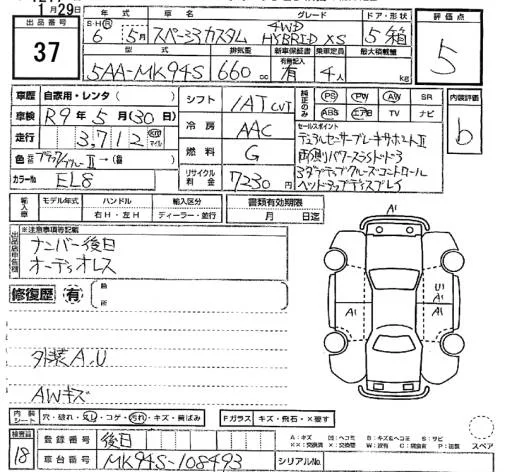 月29日
出品番号
37
年式 車名 グレード ドア・形状
S・H・R 6年 5月 スペーシアカスタム 4WD HYBRID XS 5 箱
型式 排気量 新車保証書 乗車定員 最大積載量
5AA-MK94S 660cc 有無記入 有 4人 kg
評価点
5
車歴 自家用・レンタ( )
車検 R9年5月(30日)
走行 3,712 km マイル
色 ブラック/ブルーⅡ→(替 )
カラーNo EL8
シフト IAT CVT
冷房 AAC
燃料 G
リサイクル料金 7230円
純正のみ PS PW AW SR
ABS エアB TV ナビ
内装評価
b
セールスポイント
デュアルセンサーブレーキサポートⅡ
両側パワースライドドア
アダプティブクルーズコントロール
ヘッドアップディスプレイ
輸入車 モデル年式 ハンドル 輸入区分 書類有効期限
右H・左H ディーラー・並行 月 日迄
出品店申告欄 ※注意事項等記載
ナンバー後日
オーディオレス
修復歴 有 箇所
外装A,U
AWキズ
A1
U1
A1
A1
A1
内装シート 穴・破れ・スレ・コゲ・汚れ・キズ・歯ばみ Fガラス キズ・飛石・×要す
検査員
18
登録番号 後日
車台番号 MK94S-108493
シリアルNo.
A:キズ U:ヘコミ B:キズ&ヘコミ S:サビ
XX:交換済 X:交換要 W:波有 C:腐食有 P:塗装
スペア